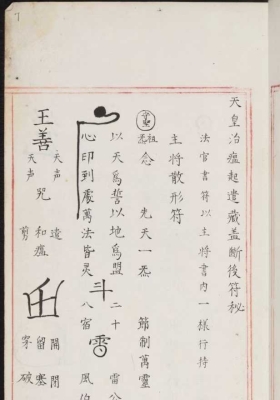 天皇治瘟起遣藏盖断後符秘
法官書符以主將書內一様行持
主將散形符
祖
炁念 先天一炁 節制萬靈
以天為誓以地為盟 二十 雷公
心印到處萬法皆灵 斗 八宿 雷 風伯
王善 天声 天声 咒 遣 和瘟 剪 開 閉 留 塞 客 破
7